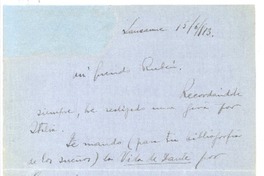 Lausanne 15/4/13.
mi querido Rubén.
Recordándote
siempre, he realizado una gira por
Italia.
Te mando (para tu bibliografía
de los sueños) la Vida de Dante por